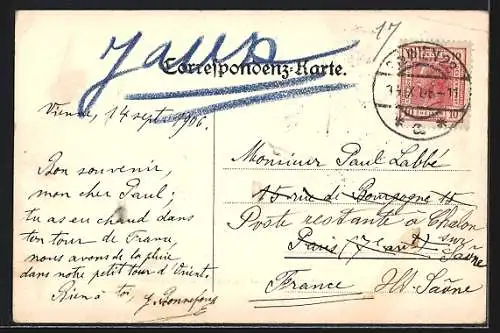 17
Correspondenz-Karte.
WIEN
10 10
Vienne, 14 sept. 1906.
Bon souvenir,
mon cher Paul;
tu as eu chaud dans
ton tour de France,
nous avons de la pluie
dans notre petit tour d'Orient.
Bien à toi,
Monsieur Paul Labbé
15 rue de Bourgogne 15
Poste restante à Chalon
sur
Paris Saône
France Hte Saône